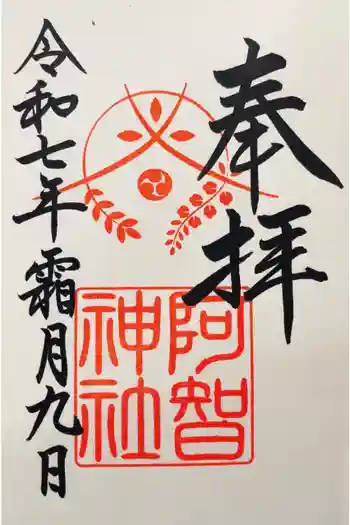 奉拝
阿智
神社
令和七年霜月九日